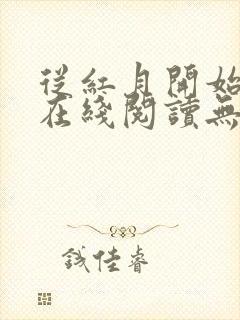 從紅月開始
在綫閱讀無
錢佳睿